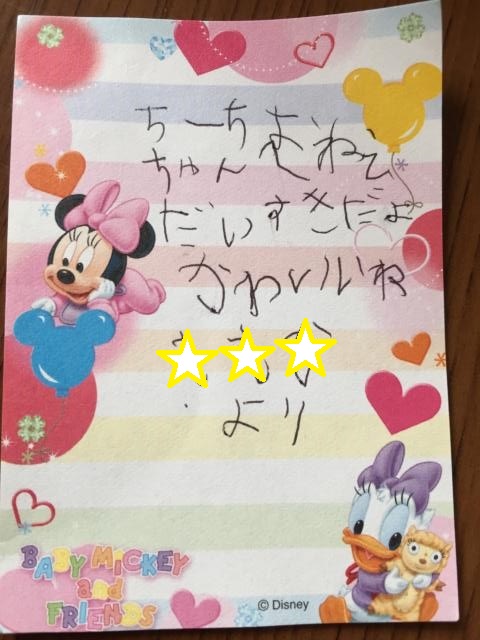 ちーち
ちゃん むね
だいすきだよ
かわいいね
より
BABY MICKEY
and
FRIENDS
© Disney